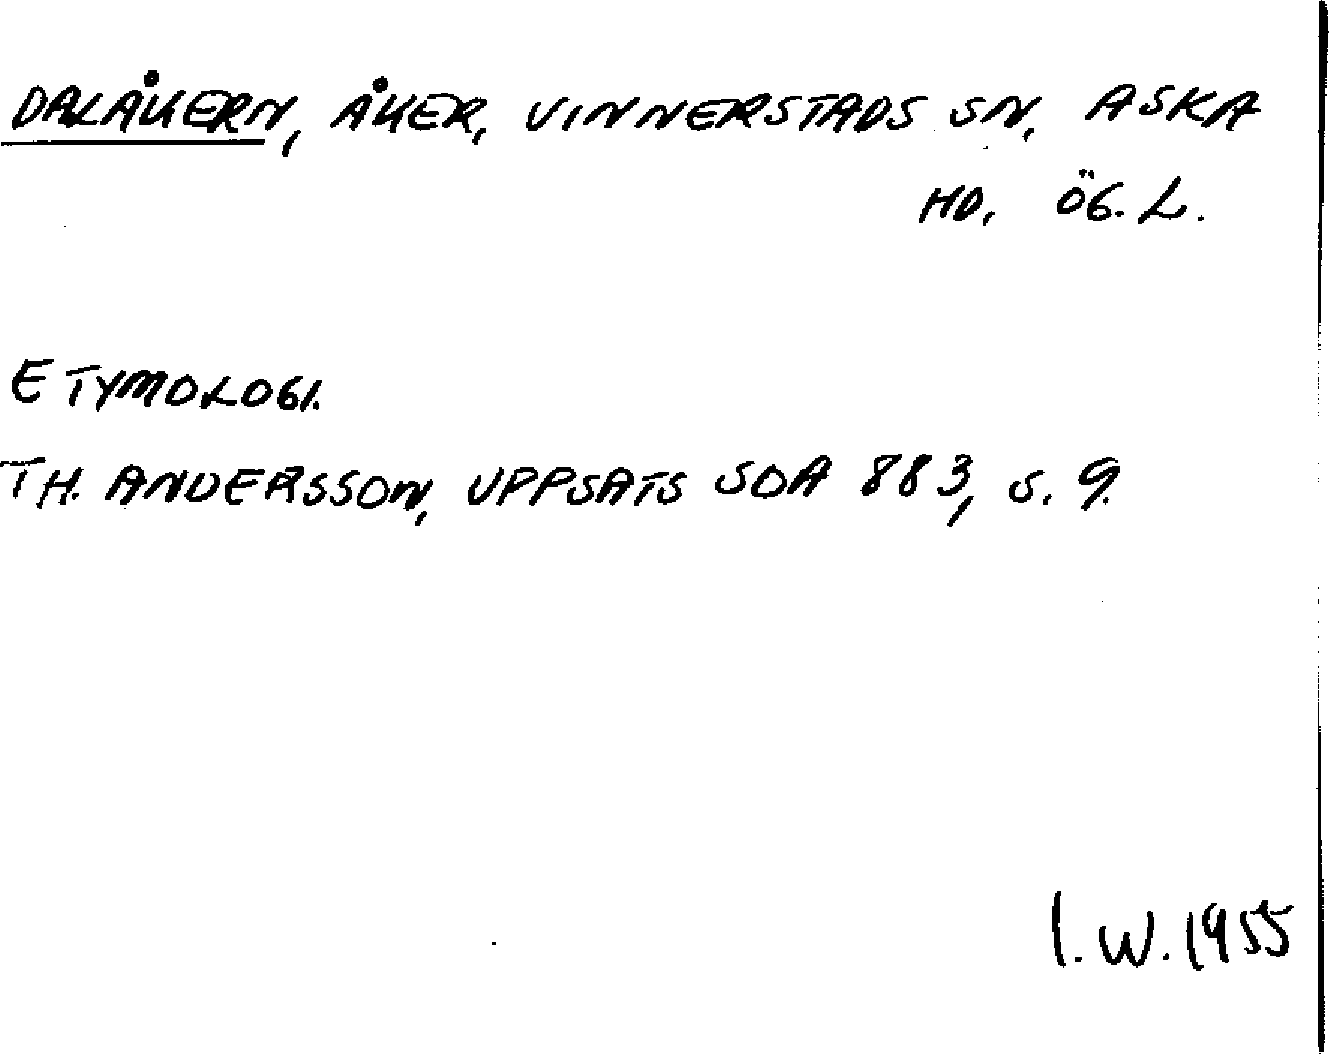 DALÅKERN, ÅKER, VINNERSTADS SN, ASKA
HD, ÖG. L.
ETYMOLOGI.
TH. ANDERSSON, UPPSATS SOA 883, S. 9.
I. W. 1955